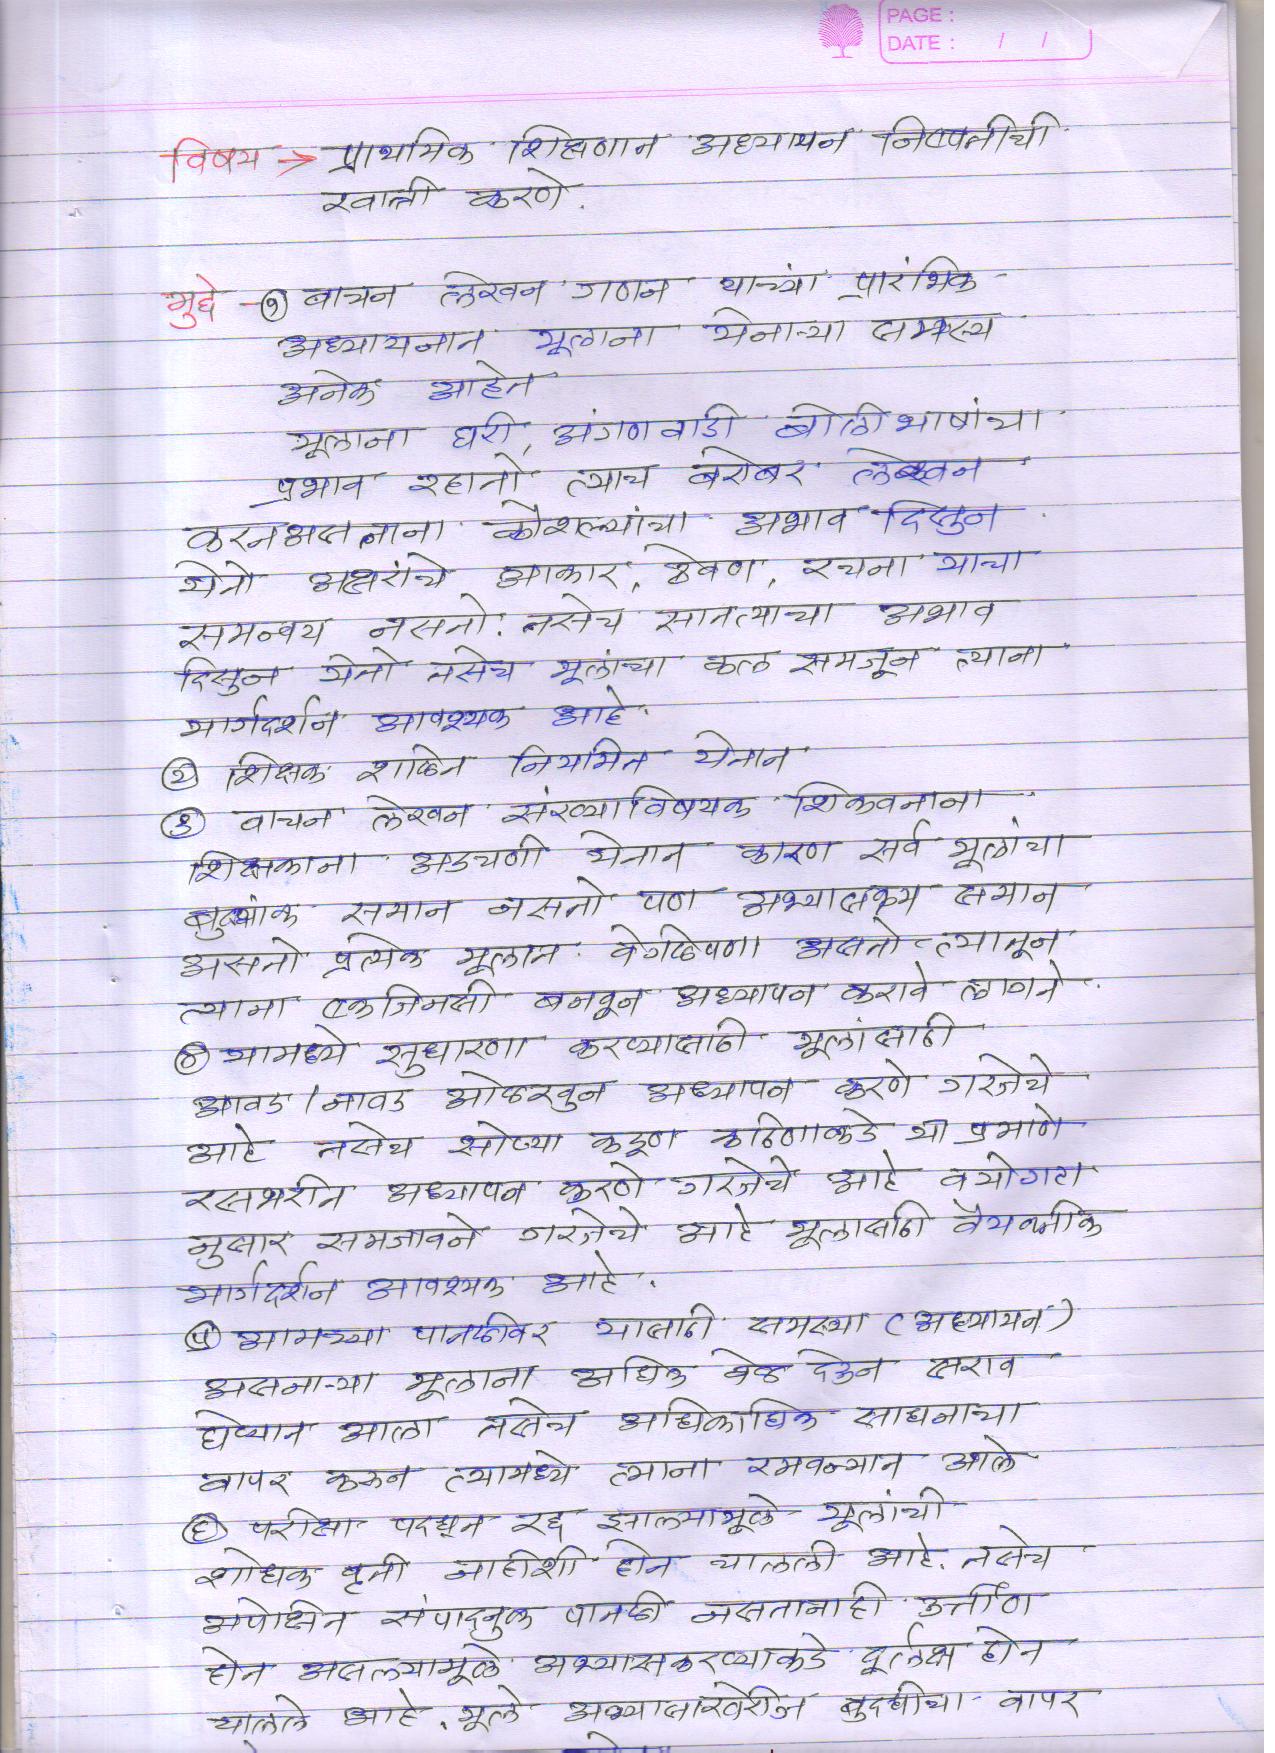 PAGE :
DATE : / /
विषय → प्राथमिक शिक्षणात अध्ययन निष्पत्तीची
खात्री करणे.
मुद्दे - १ वाचन लेखन गणन याच्यां प्रारंभिक
अध्यायनात मूलाना येनाऱ्या समस्य
अनेक आहेत
मूलाना घरी, अंगणवाडी बोलीभाषांचा
प्रभाव रहातो त्याच बरोबर लेखन
करतअसताना कौशल्यांचा अभाव दिसुन
येतो अक्षरांचे आकार, ठेवण, रचना याचा
समन्वय नसतो. तसेच सातत्याचा अभाव
दिसुन येतो तसेच मूलांचा कल समजून त्याना
मार्गदर्शन आवश्यक आहे.
२ शिक्षक शाळेत नियमित येतात
३ वाचन लेखन संख्याविषयक शिकवताना
शिक्षकाना अडचणी येतात कारण सर्व मूलांचा
बुद्ध्यांक समान नसतो पण अभ्यासक्रम समान
असतो प्रत्येक मूलात वेगळेपणा असतो त्यातून
त्याना एकजिनसी बनवून अध्यापन करावे लागते.
४ यामध्ये सुधारणा करण्यासाठी मूलांसाठी
आवड / नावड ओळखुन अध्यापन करणे गरजेचे
आहे तसेच सोप्या कडूण कठिणाकडे या प्रमाणे
रसभरीत अध्यापन करणे गरजेचे आहे वयोगटा
नुसार समजावने गरजेचे आहे मूलासाठी वैयक्तीक
मार्गदर्शन आवश्यक आहे.
५ आमच्या पातळीवर यासाठी समस्या (अध्यायन)
असनाऱ्या मूलाना अधिक वेळ देऊन सराव
घेण्यात आला तसेच अधिकाधिक साधनाचा
वापर करून त्यामध्ये त्याना रमवन्यात आले
६ परीक्षा पदधत रद्द झाल्यामूळे मूलांची
शोधक वृत्ती नाहीशी होत चालली आहे. तसेच
अपेक्षित संपादनुक पातळी नसतानाही उर्त्तीण
होत असल्यामूळे अभ्यासकरण्याकडे दूर्लक्ष होत
चालले आहे. मूले अभ्यासाखेरीज बुदधीचा वापर